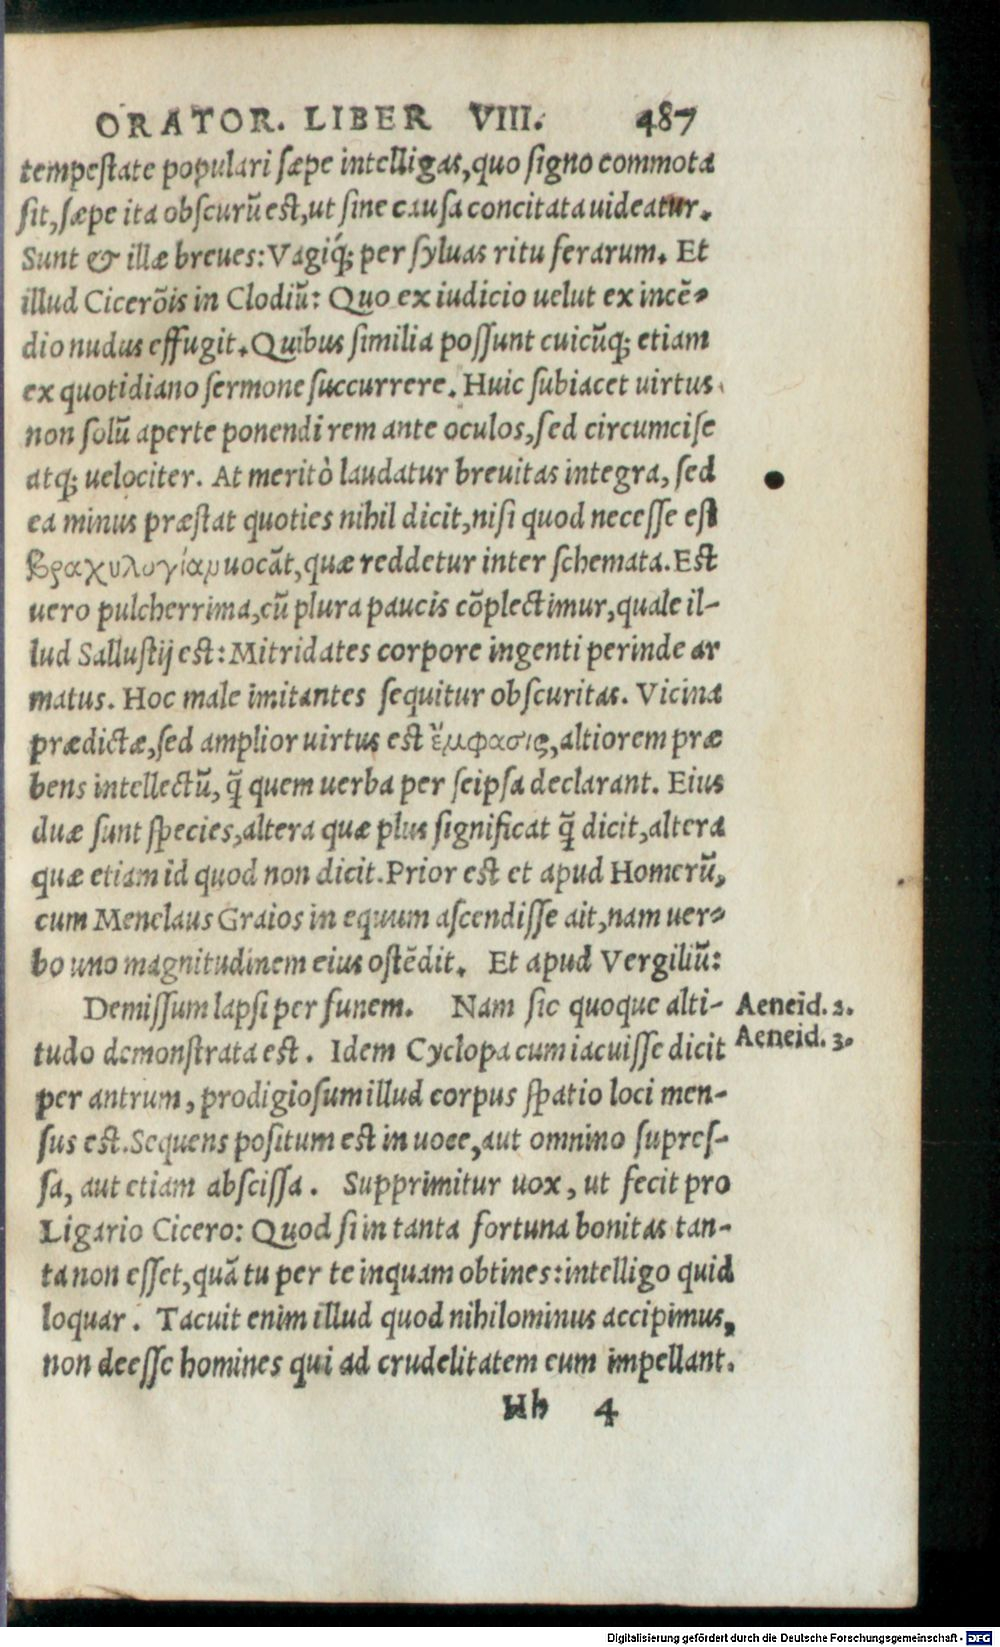 ORATOR. LIBER VIII. 487
tempeſtate populari ſæpe intelligas,quo ſigno commota
ſit,ſæpe ita obſcurũ eſt,ut ſine cauſa concitata uideatur.
Sunt & illæ breues: Vagiq́; per ſyluas ritu ferarum. Et
illud Cicerõis in Clodiũ: Quo ex iudicio uelut ex incẽ-
dio nudus effugit. Quibus ſimilia poſſunt cuicũq; etiam
ex quotidiano ſermone ſuccurrere. Huic ſubiacet uirtus
non ſolũ aperte ponendi rem ante oculos,ſed circumciſe
atq; uelociter. At meritò laudatur breuitas integra, ſed
ea minus præſtat quoties nihil dicit,niſi quod neceſſe eſt
βραχυλογίαν uocãt,quæ reddetur inter ſchemata. Eſt
uero pulcherrima,cũ plura paucis cõplectimur,quale il-
lud Salluſtij eſt: Mitridates corpore ingenti perinde ar
matus. Hoc male imitantes ſequitur obſcuritas. Vicina
prædictæ,ſed amplior uirtus eſt ἔμφασις,altiorem præ
bens intellectũ, q̃ quem uerba per ſeipſa declarant. Eius
duæ ſunt ſpecies,altera quæ plus ſignificat q̃ dicit,altera
quæ etiam id quod non dicit. Prior eſt et apud Homerũ,
cum Menelaus Graios in equum aſcendiſſe ait,nam uer-
bo uno magnitudinem eius oſtẽdit. Et apud Vergiliũ:
Demiſſum lapſi per funem. Nam ſic quoque alti- Aeneid. 2.
tudo demonſtrata eſt. Idem Cyclopa cum iacuiſſe dicit Aeneid. 3.
per antrum, prodigioſum illud corpus ſpatio loci men-
ſus eſt. Sequens poſitum eſt in uoce,aut omnino ſupreſ-
ſa, aut etiam abſciſſa. Supprimitur uox, ut fecit pro
Ligario Cicero: Quod ſi in tanta fortuna bonitas tan-
ta non eſſet,quã tu per te inquam obtines: intelligo quid
loquar. Tacuit enim illud quod nihilominus accipimus,
non deeſſe homines qui ad crudelitatem eum impellant.
Hh 4
Digitalisierung gefördert durch die Deutsche Forschungsgemeinschaft - DFG